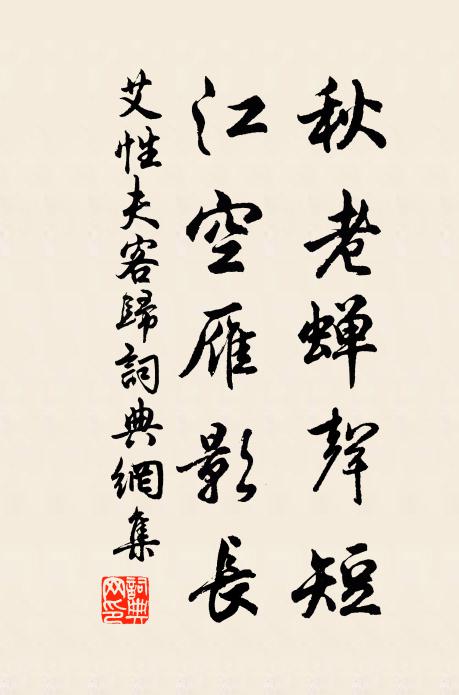 秋老蝉聲短
江空雁影長
艾性夫客歸詞典網集
詞典
网印